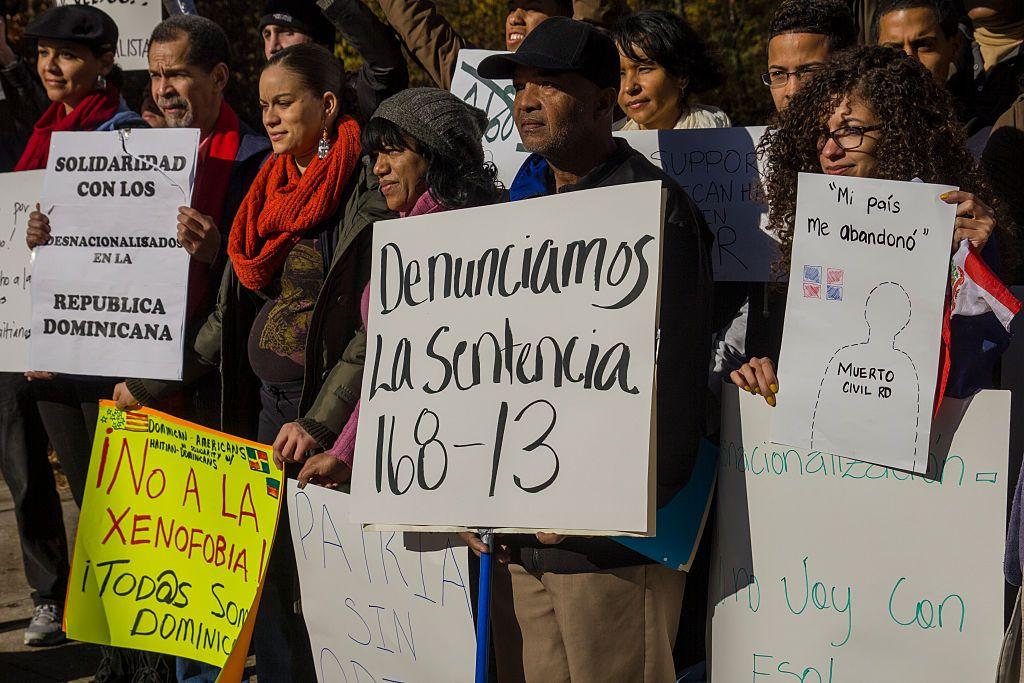 SOLIDARIDAD
CON LOS
DESNACIONALISADOS
EN LA
REPUBLICA
DOMINICANA
Denunciamos
La Sentencia
168-13
"Mi país
me abandonó"
MUERTO
CIVIL RD
DOMINICAN-AMERICANS
IN SOLIDARITY W/
HAITIAN-DOMINICANS
¡NO A LA
XENOFOBIA!
¡TOD@S SOM
DOMINIC
PATRIA
SIN
SUPPOR
ICAN HA
EN
R
nacionalización-
no Voy Con
Eso!